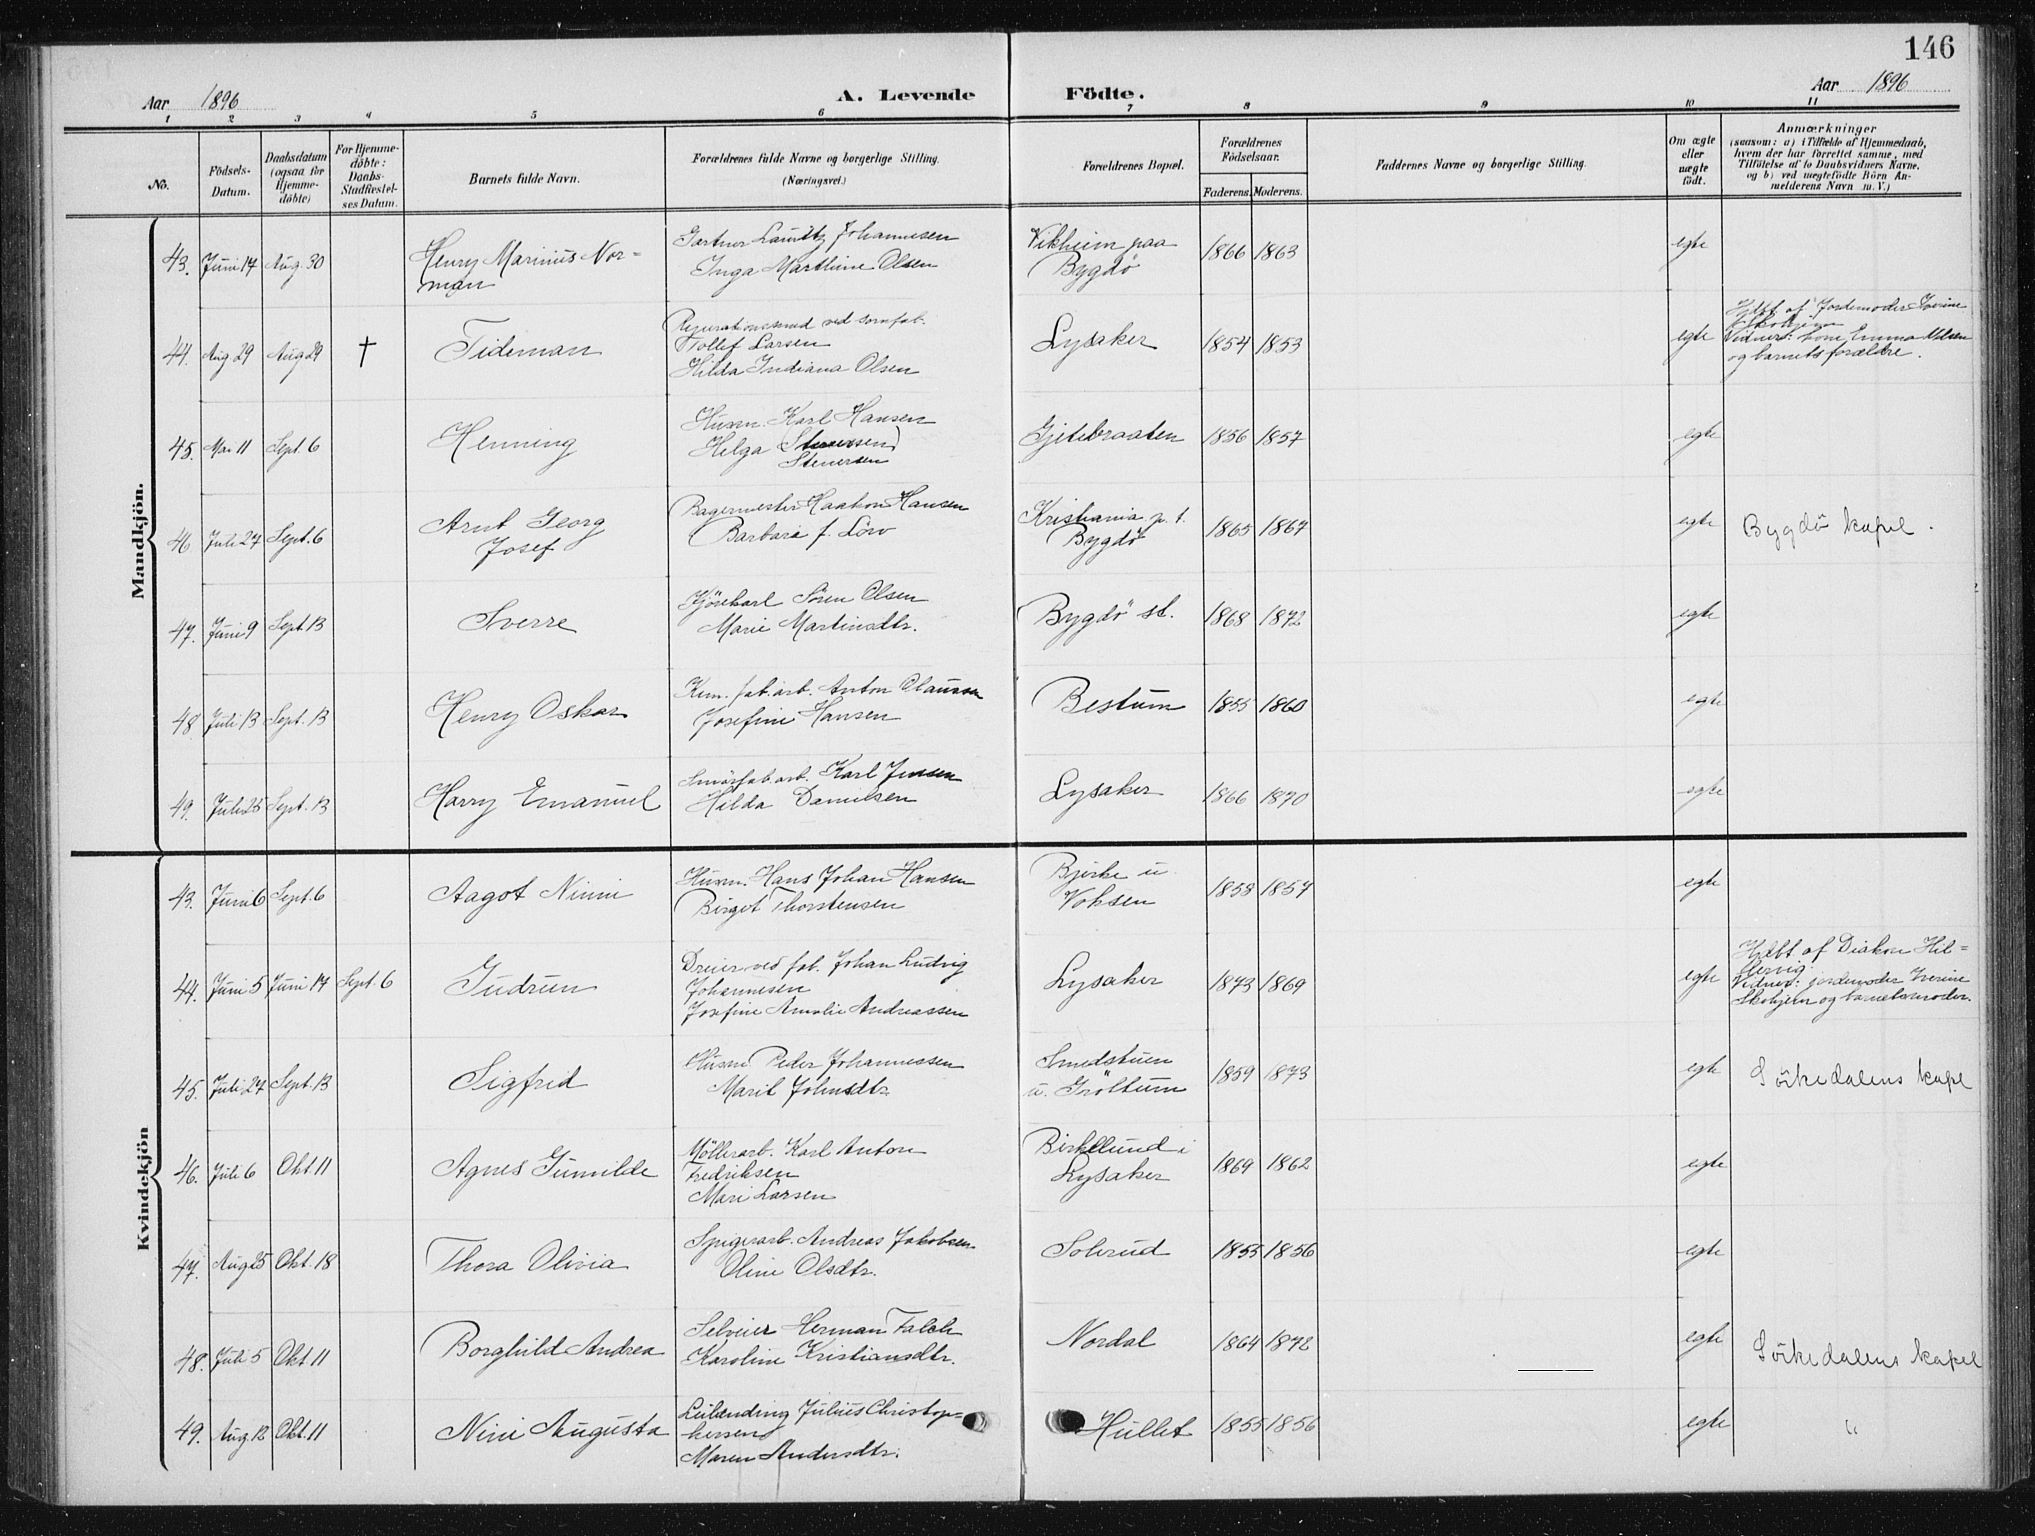 146
Aar 1896
A. Levende Födte.
Aar 1896
1 2 3 4 5 6 7 8 9 10 11
No.
Födsels-
Datum.
Daabsdatum
(ogsaa for
Hjemme-
döbte)
For Hjemme-
döbte:
Daabs-
Stadfæstel-
ses Datum.
Barnets fulde Navn.
Forældrenes fulde Navne og borgerlige Stilling.
(Næringsvei.)
Forældrenes Bopæl.
Forældrenes
Födselsaar.
Faderens. Moderens.
Faddernes Navne og borgerlige Stilling.
Om ægte
eller
uægte
födt.
Anmærkninger
(saasom: a) i Tilfælde af Hjemmedaab,
hvem der har forrettet samme, med
Tilföielse af to Daabsvidners Navne,
og b) ved uægtefödte Börn An-
melderens Navn m. V.)
Mandkjön.
43. Juni 17 Aug. 30 Henry Marinius Nor-
man
Gartner Lauritz Johannesen
Inga Marthine Olsen
Vikheim paa
Bygdö
1866 1863 egte
44. Aug 29 Aug 29 † Tideman
Reparationssmed ved sömfab.
Tollef Larsen
Hilda Indiana Olsen
Lysaker 1854 1853 egte
Hdbt af Jordemoder
Skohjem
Vidner: kone Emma Nilsen
og barnets forældre.
45. Mai 11 Sept. 6 Henning
Husm. Karl Hansen
Helga (Stenersen)
Stenersen
Gjetebraaten 1856 1857 egte
46 Juli 27 Sept. 6 Arnt Georg
Josef
Bagermester Haakon Hansen
Barbara f. Löw
Kristiania p. t.
Bygdö
1865 1867 egte Bygdö kapel.
47. Juni 9 Sept. 13 Sverre
Kjörekarl Sören Olsen
Marie Martinsdtr.
Bygdö st. 1868 1872 egte
48 Juli 13 Sept. 13 Henry Oskar
Kem. fab. arb. Anton Claussen
Josefine Hansen
Bestum 1855 1860 egte
49. Juli 25 Sept. 13 Harry Emanuel
Smörfab. arb. Karl Jensen
Hilda Danielsen
Lysaker 1866 1870 egte
Kvindekjön
43. Juni 6 Sept. 6 Aagot Ninni
Husm. Hans Johan Hansen
Birget Thorstensen
Bjerke u.
Voksen
1858 1857 egte
44. Juni 5 Juni 17 Sept. 6 Gudrun
Dreier ved fab. Johan Ludvig
Johannesen
Josefine Amalie Andreassen
Lysaker 1873 1869 egte
Hdbt. af Diakon Hil-
Vidner: jordemoder
Skohjem og barnets moder.
45. Juli 27 Sept. 13 Sigfrid
Husm. Peder Johannessen
Marit Johnsdtr.
Smedstuen
u. Gröttum
1859 1873 egte Sörkedalens kapl
46. Juli 6 Okt. 11 Agnes Gunnilde
Möllerarb. Karl Anton
Fredriksen
Mari Larsen
Birkelund i
Lysaker
1869 1862 egte
47. Aug 25 Okt. 18 Thora Olivia
Spigerarb. Andreas Jakobsen
Oline Olsdtr.
Solerud 1855 1856 egte
48. Juli 5 Okt 11 Borghild Andrea
Selveier Herman Falch
Karoline Kristiansdtr.
Nordal 1864 1872 egte Sörkedalens kapel
49. Aug. 12 Okt. 11 Nini Augusta
Leilænding Julius Christop-
hersen
Maren Andersdtr.
Hullet 1855 1856 egte "